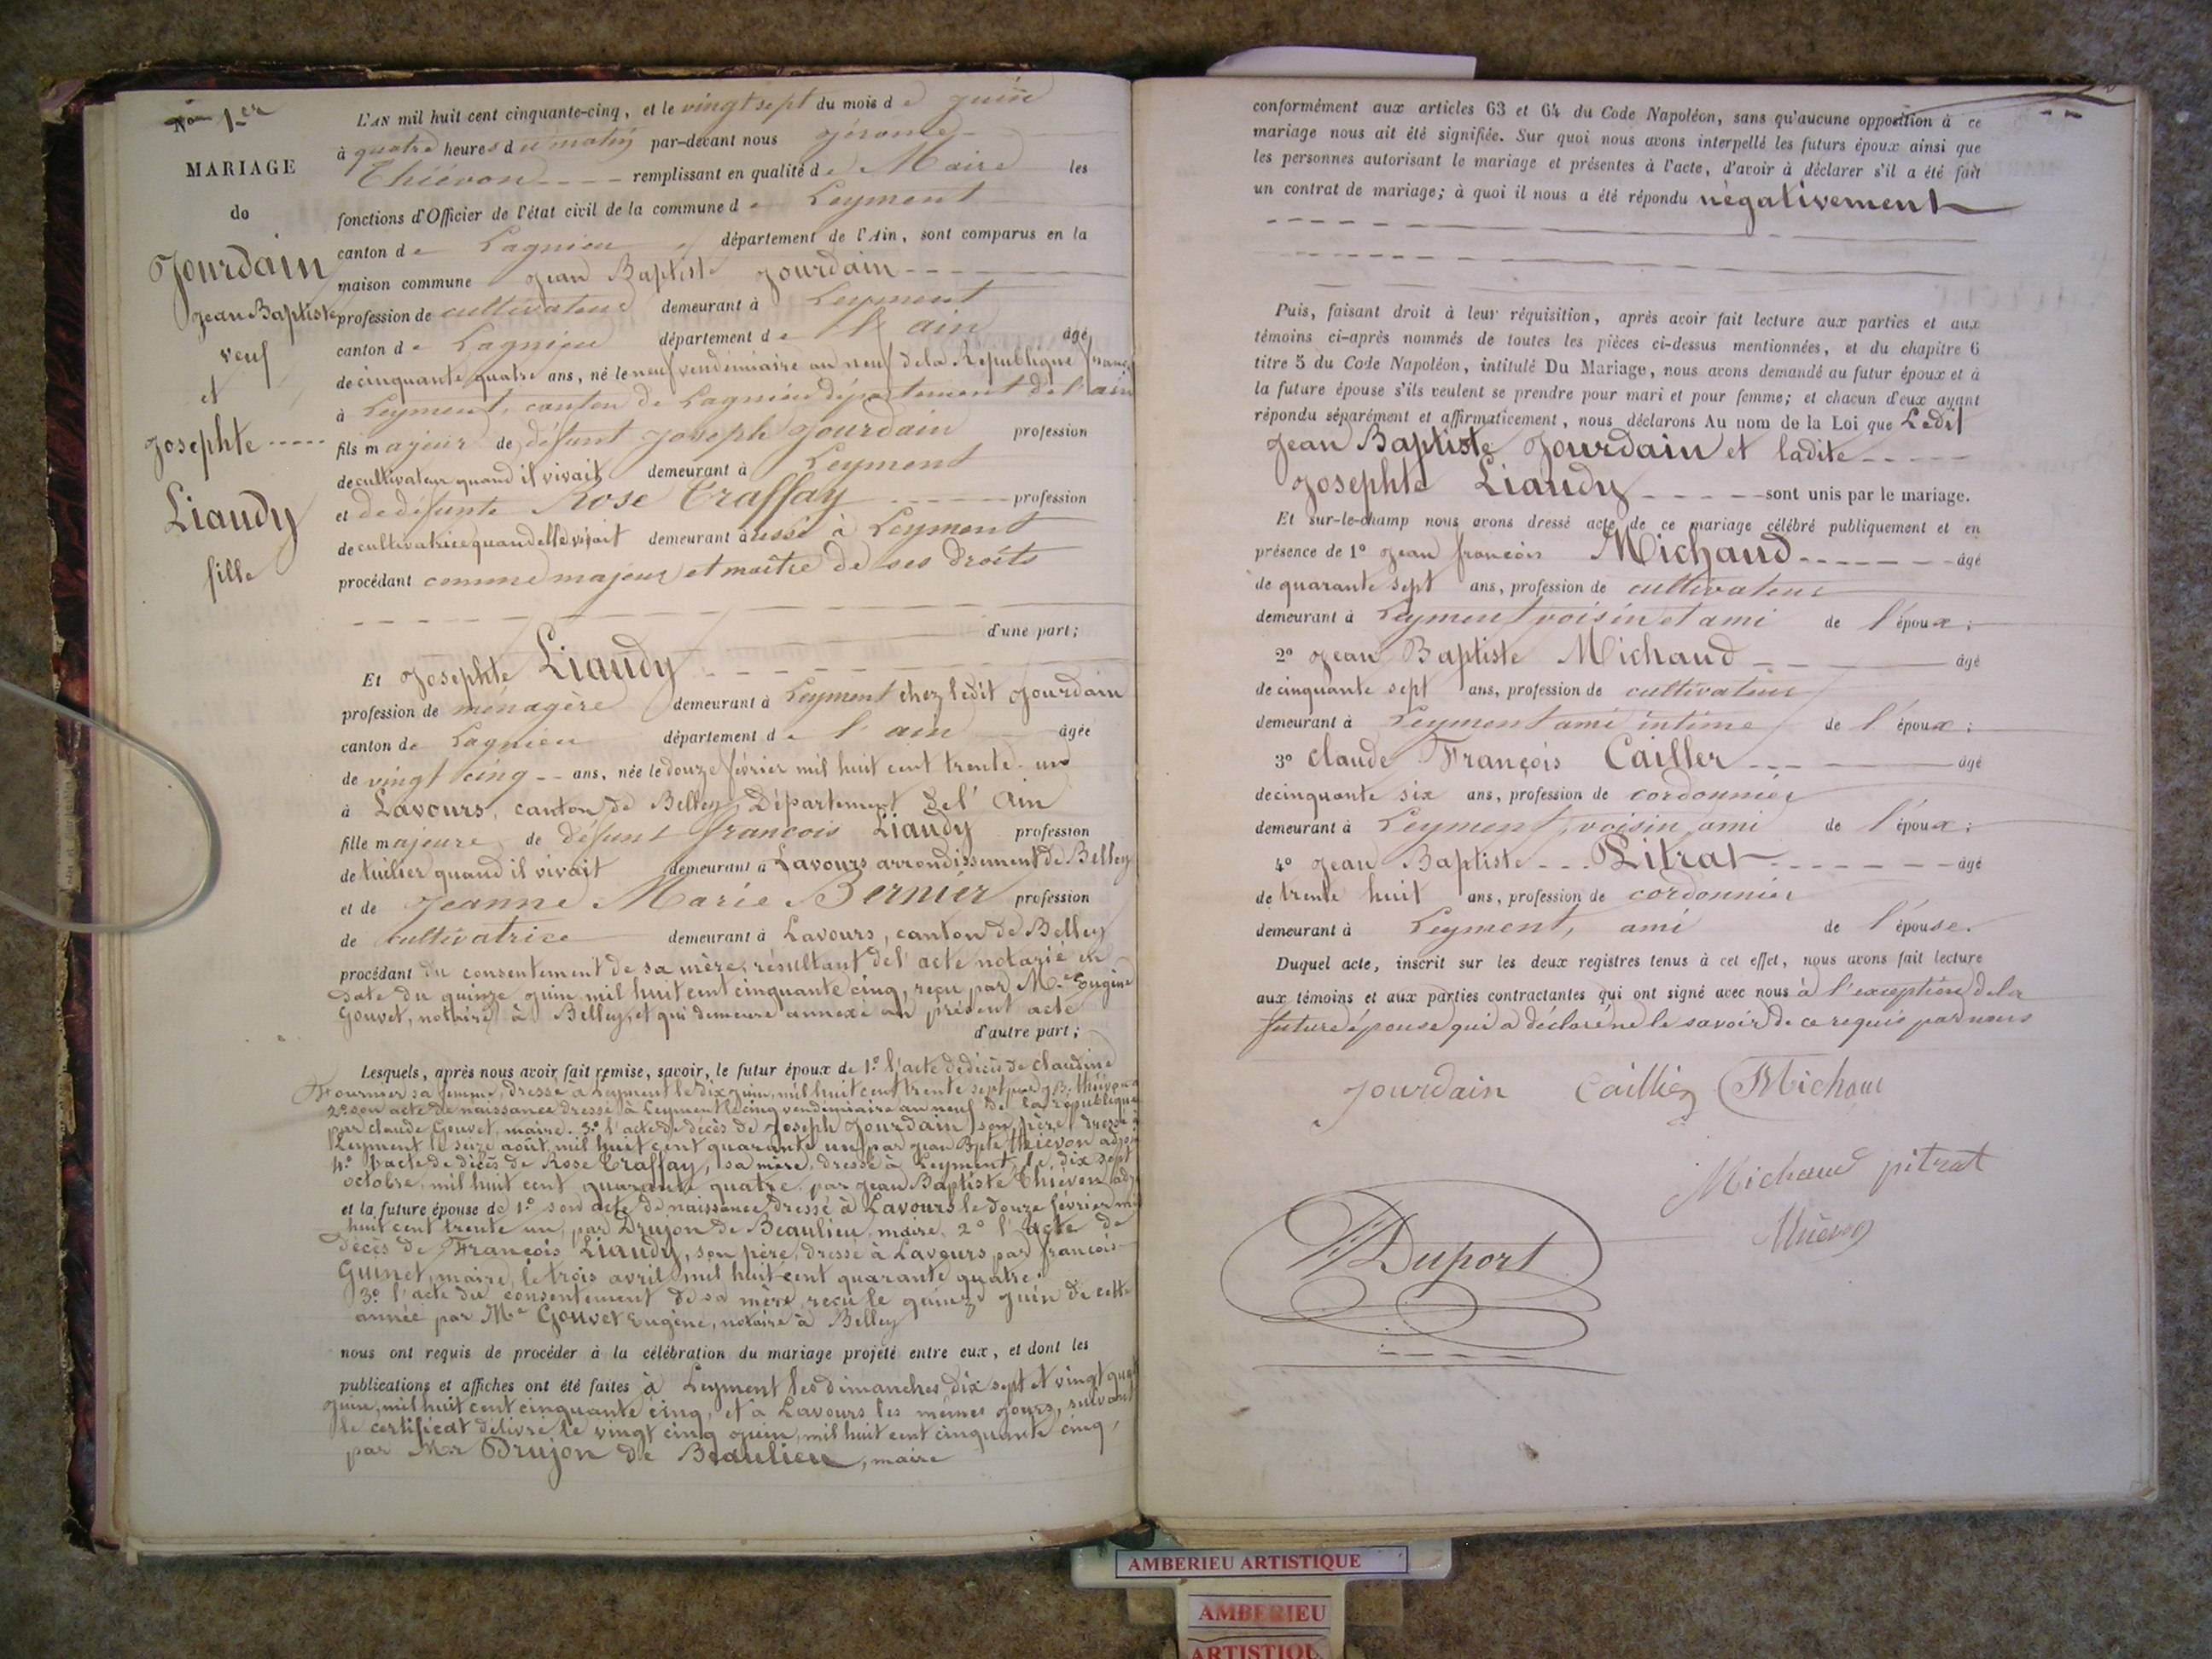 Nom 1er
MARIAGE
de
Jourdain
Jean Baptiste
veuf
et
Josephte
Liaudy
fille
L'AN mil huit cent cinquante-cinq, et le vingt sept du mois de juin
à quatre heures du matin par-devant nous Jérome
Thiévon remplissant en qualité de Maire les
fonctions d'Officier de l'état civil de la commune de Leyment
canton de Lagnieu département de l'Ain, sont comparus en la
maison commune Jean Baptiste Jourdain
profession de cultivateur demeurant à Leyment
canton de Lagnieu département de l'ain âgé
de cinquante quatre ans, né le neuf vendémiaire an neuf de la République
à Leyment, canton de Lagnieu département de l'ain
fils majeur de défunt Joseph Jourdain profession
de cultivateur quand il vivait demeurant à Leyment
et de défunte Rose Traffay profession
de cultivatrice quand elle vivait demeurant aussi à Leyment
procédant comme majeur et maître de ses droits
d'une part;
Et Josephte Liaudy
profession de ménagère demeurant à Leyment chez ledit Jourdain
canton de Lagnieu département de l'ain âgée
de vingt cinq ans, née le douze février mil huit cent trente un
à Lavours, canton de Belley, Département de l'Ain
fille majeure de défunt françois Liaudy profession
de tuilier quand il vivait demeurant à Lavours arrondissement de Belley
et de Jeanne Marie Bernier profession
de cultivatrice demeurant à Lavours, canton de Belley
procédant du consentement de sa mère, résultant de l'acte notarié en
date du quinze juin mil huit cent cinquante cinq, reçu par Me Eugène
Gouvet, notaire à Belley, et qui demeure annexé au présent acte
d'autre part;
Lesquels, après nous avoir fait remise, savoir, le futur époux de 1º l'acte de décès de Claudine
Fournier sa femme, dressé à Leyment le dix juin, mil huit cent trente sept par J. B. Thiévon
2º son acte de naissance dressé à Leyment le cinq vendémiaire an neuf de la république
par Claude Gouvet, maire. 3º l'acte de décès de Joseph Jourdain, son père, dressé à
Leyment le seize août, mil huit cent quarante un par Jean Bpte Thiévon adjoint
4º l'acte de décès de Rose Traffay, sa mère, dressé à Leyment, le dix sept
octobre, mil huit cent quarante quatre, par Jean Baptiste Thiévon adj
et la future épouse de 1º son acte de naissance dressé à Lavours le douze février mil
huit cent trente un, par Drujon de Beaulieu, maire, 2º l'acte de
décès de François Liaudy, son père, dressé à Lavours, par françois
Guinet, maire, le trois avril mil huit cent quarante quatre.
3º l'acte du consentement de sa mère, reçu le quinze juin de cette
année par Me Gouvet Eugène, notaire à Belley
nous ont requis de procéder à la célébration du mariage projeté entre eux, et dont les
publications et affiches ont été faites à Leyment les dimanches dix sept et vingt
juin, mil huit cent cinquante cinq, et à Lavours les mêmes jours, suivant
le certificat délivré le vingt cinq juin, mil huit cent cinquante cinq,
par Mr Drujon de Beaulieu, maire
conformément aux articles 63 et 64 du Code Napoléon, sans qu'aucune opposition à ce
mariage nous ait été signifiée. Sur quoi nous avons interpellé les futurs époux ainsi que
les personnes autorisant le mariage et présentes à l'acte, d'avoir à déclarer s'il a été fait
un contrat de mariage; à quoi il nous a été répondu négativement
Puis, faisant droit à leur réquisition, après avoir fait lecture aux parties et aux
témoins ci-après nommés de toutes les pièces ci-dessus mentionnées, et du chapitre 6
titre 5 du Code Napoléon, intitulé Du Mariage, nous avons demandé au futur époux et à
la future épouse s'ils veulent se prendre pour mari et pour femme; et chacun d'eux ayant
répondu séparément et affirmativement, nous déclarons Au nom de la Loi que Ledit
Jean Baptiste Jourdain et ladite
Josephte Liaudy sont unis par le mariage.
Et sur-le-champ nous avons dressé acte de ce mariage célébré publiquement et en
présence de 1º Jean françois Michaud âgé
de quarante sept ans, profession de cultivateur
demeurant à Leyment voisin et ami de l'époux;
2º Jean Baptiste Michaud âgé
de cinquante sept ans, profession de cultivateur
demeurant à Leyment ami intime de l'époux;
3º Claude François Cailler âgé
de cinquante six ans, profession de cordonnier
demeurant à Leyment, voisin, ami de l'époux;
4º Jean Baptiste Pitrat âgé
de trente huit ans, profession de cordonnier
demeurant à Leyment, ami de l'épouse.
Duquel acte, inscrit sur les deux registres tenus à cet effet, nous avons fait lecture
aux témoins et aux parties contractantes qui ont signé avec nous à l'exception de la
future épouse qui a déclaré ne le savoir de ce requis par nous
Jourdain Caillier Michaud
Michaud pitrat
Duport Thiévon
AMBERIEU ARTISTIQUE
AMBERIEU
ARTISTIQU